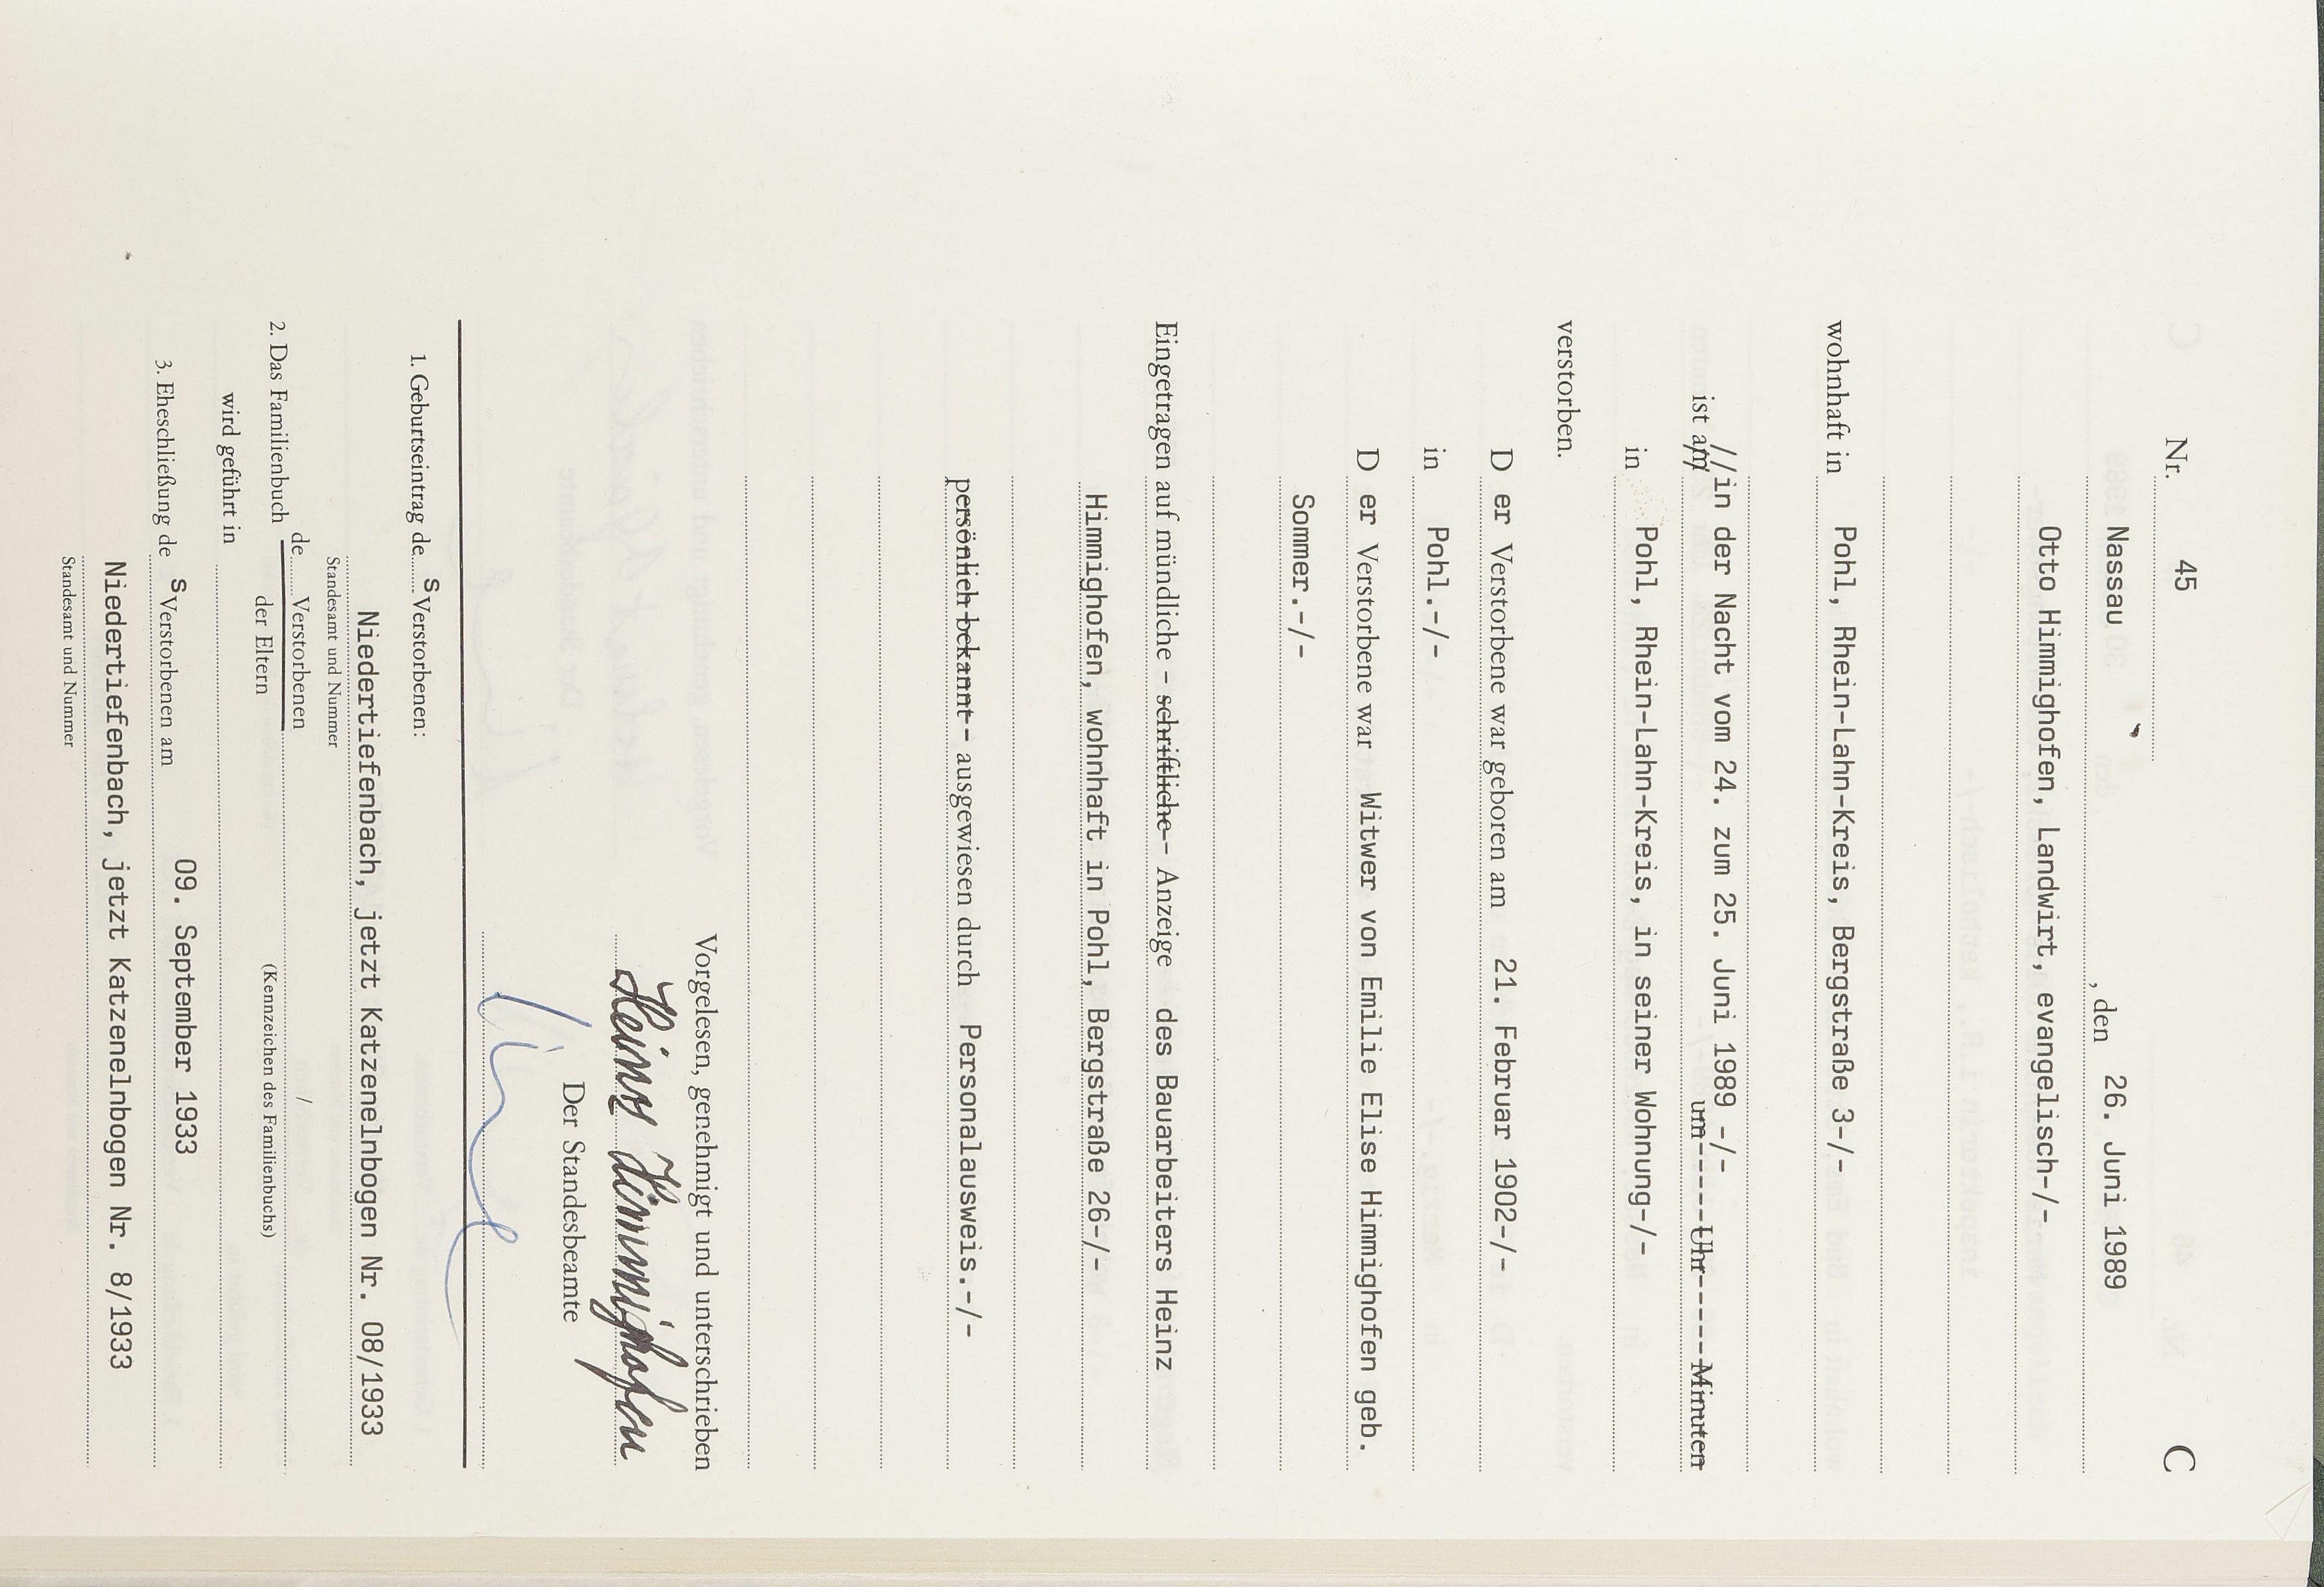 Nr. 45 C
Nassau , den 26. Juni 1989
Otto Himmighofen, Landwirt, evangelisch-/-
wohnhaft in Pohl, Rhein-Lahn-Kreis, Bergstraße 3-/-
//in der Nacht vom 24. zum 25. Juni 1989 -/-
ist am um------Uhr------Minuten
in Pohl, Rhein-Lahn-Kreis, in seiner Wohnung-/-
verstorben.
D er Verstorbene war geboren am 21. Februar 1902-/-
in Pohl.-/-
D er Verstorbene war Witwer von Emilie Elise Himmighofen geb.
Sommer.-/-
Eingetragen auf mündliche - schriftliche - Anzeige des Bauarbeiters Heinz
Himmighofen, wohnhaft in Pohl, Bergstraße 26-/-
persönlich bekannt - ausgewiesen durch Personalausweis.-/-
Vorgelesen, genehmigt und unterschrieben
Heinz Himmighofen
Der Standesbeamte
1. Geburtseintrag de s Verstorbenen:
Niedertiefenbach, jetzt Katzenelnbogen Nr. 08/1933
Standesamt und Nummer
2. Das Familienbuch de Verstorbenen /
der Eltern (Kennzeichen des Familienbuchs)
wird geführt in
3. Eheschließung de s Verstorbenen am 09. September 1933
Niedertiefenbach, jetzt Katzenelnbogen Nr. 8/1933
Standesamt und Nummer